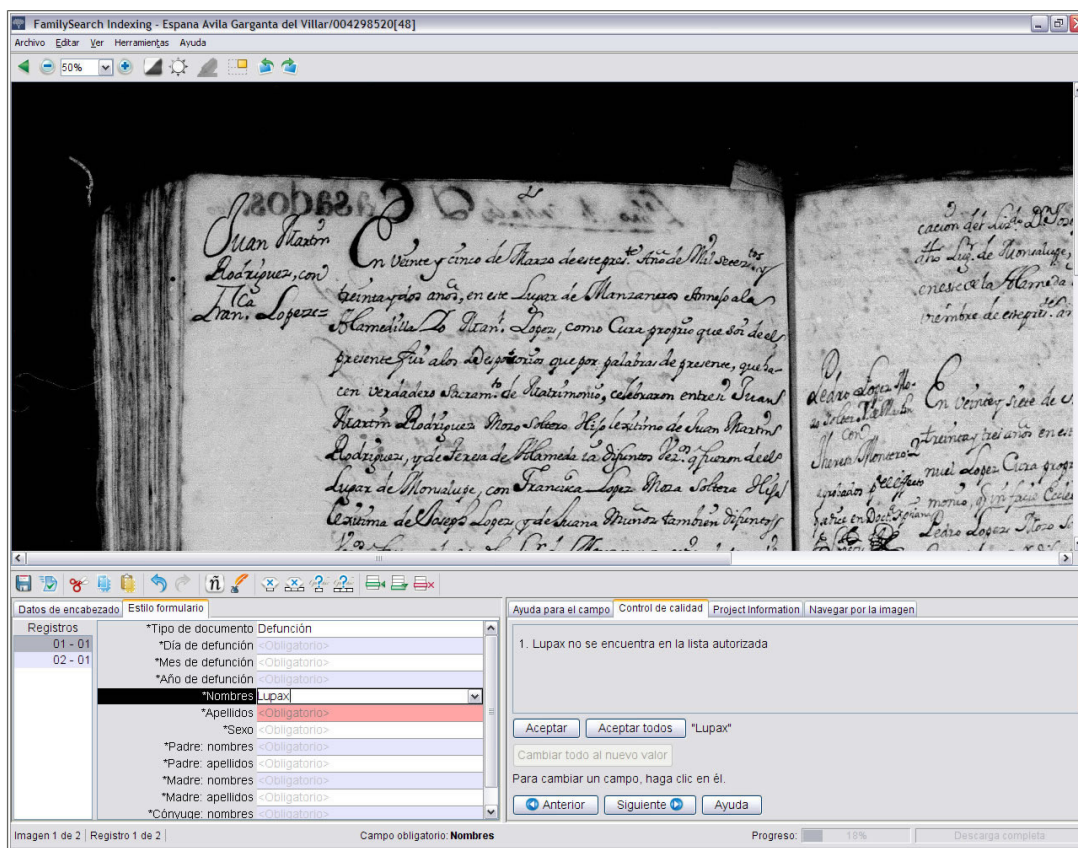 FamilySearch Indexing - Espana Avila Garganta del Villar/004298520[48]
Archivo Editar Ver Herramientas Ayuda
50%
Casados.
Juan Martin
Rodriguez, con
Fran.ca Lopez=
En Veinte y cinco de Marzo de este pres.te Año de Mil setez.tos y
treinta y dos años, en este Lugar de Manzaneros Annejo a la
Alamedilla Yo Man.l Lopez, como Cura proprio que soi de el
presente fui a los Desposorios que por palabras de presente, que ha-
cen verdadero Sacram.to de Matrimonio, celebraron entre Juan
Martin Rodriguez Mozo soltero Hijo lexitimo de Juan Martin
Rodriguez, y de Teresa de Alameda ia difuntos Vez.s q fueron de el
Lugar de Monsalupe, con Francisca Lopez Moza soltera Hija
Lexitima de Joseph Lopez y de Juana Muñoz tambien difuntos
cacion del
dho Lug.r de Monsalupe,
la Alameda
Pedro Lopez Mo-
con
Theresa Montero
En veinte y siete de
treinta y tres años en es
nuel Lopez Cura prop
monio,
Pedro Lopez Mozo So
Datos de encabezado Estilo formulario
Registros
01 - 01
02 - 01
*Tipo de documento Defunción
*Día de defunción <Obligatorio>
*Mes de defunción <Obligatorio>
*Año de defunción <Obligatorio>
*Nombres Lupax
*Apellidos <Obligatorio>
*Sexo <Obligatorio>
*Padre: nombres <Obligatorio>
*Padre: apellidos <Obligatorio>
*Madre: nombres <Obligatorio>
*Madre: apellidos <Obligatorio>
*Cónyuge: nombres <Obligatorio>
Ayuda para el campo Control de calidad Project Information Navegar por la imagen
1. Lupax no se encuentra en la lista autorizada
Aceptar Aceptar todos "Lupax"
Cambiar todo al nuevo valor
Para cambiar un campo, haga clic en él.
Anterior Siguiente Ayuda
Imagen 1 de 2 Registro 1 de 2 Campo obligatorio: Nombres Progreso: 18% Descarga completa